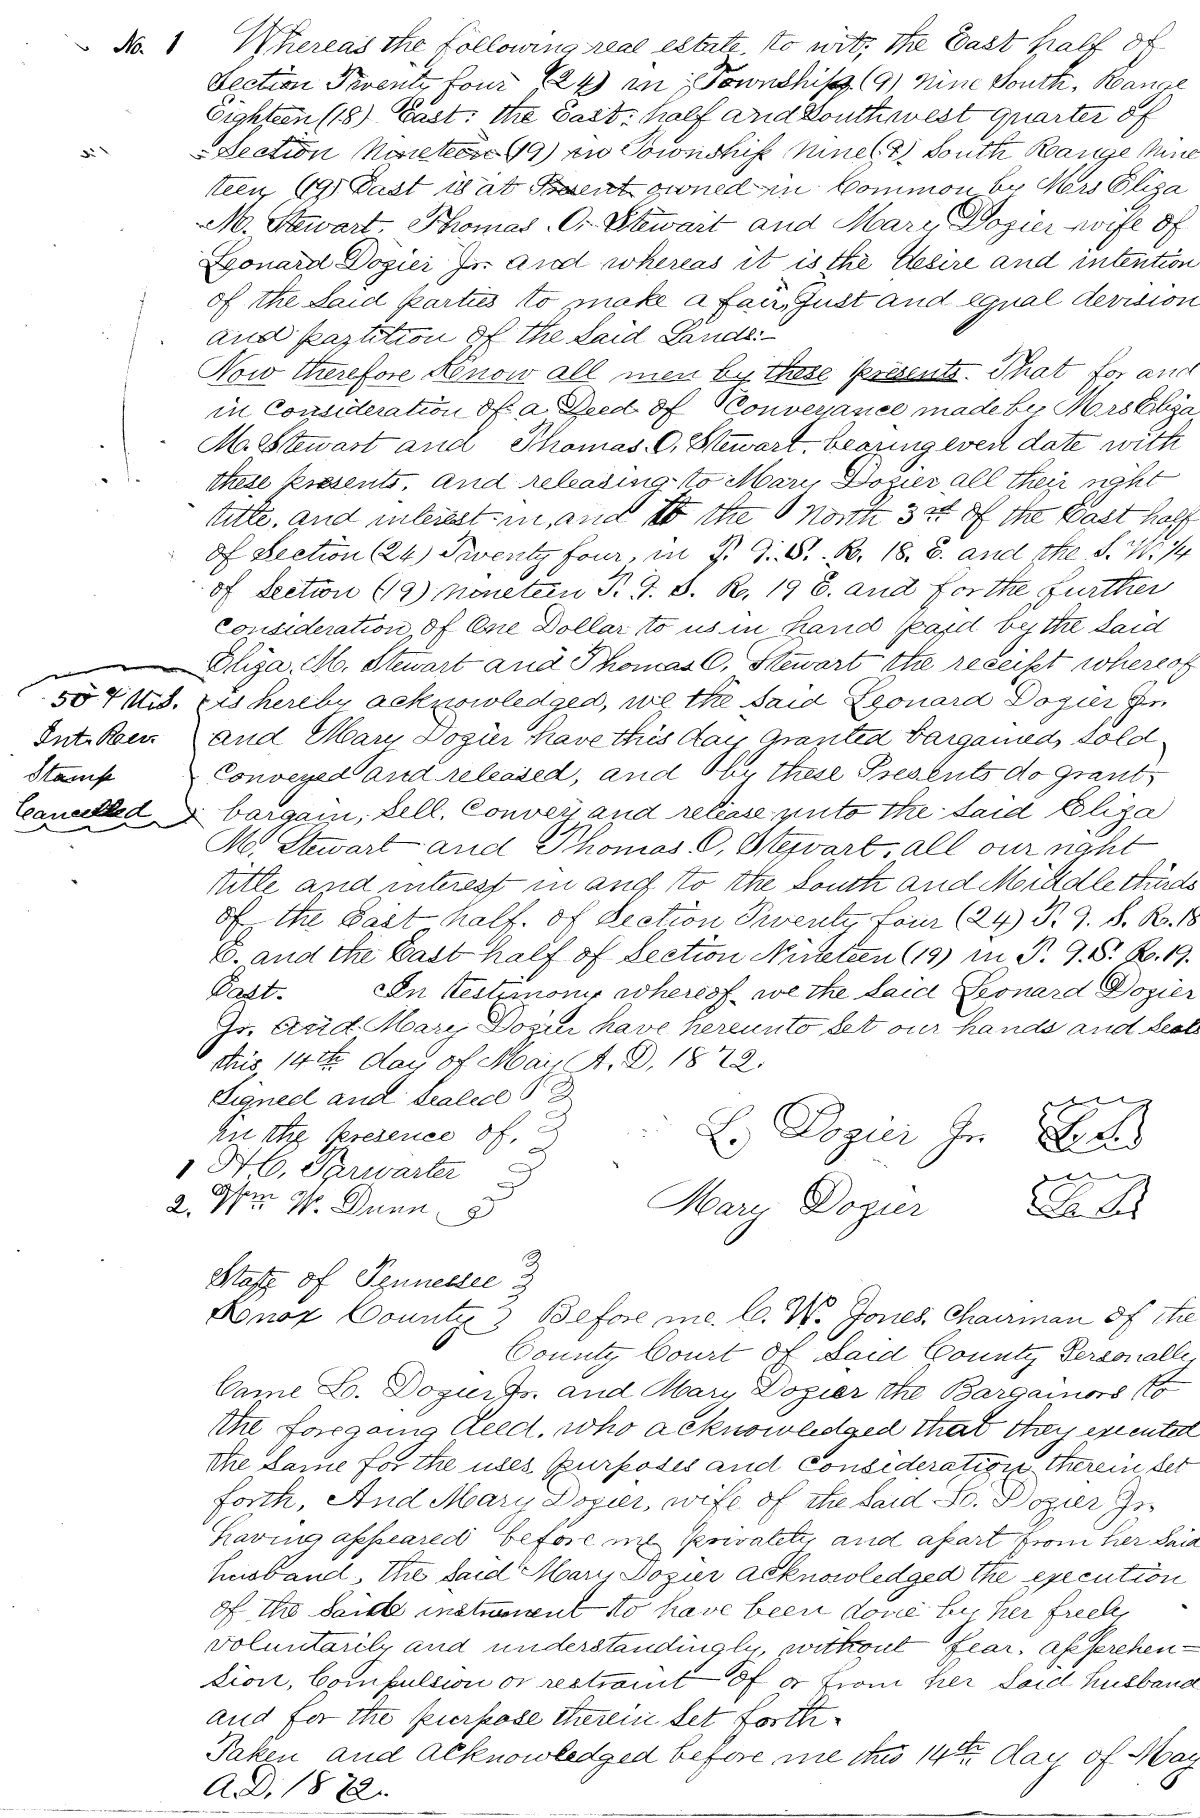 No. 1 Whereas the following real estate, to wit; the East half of
Section Twenty four (24) in Township (9) nine South, Range
Eighteen (18) East: the East half and Southwest quarter of
Section Nineteen (19) in Township Nine (9) South Range Nine
teen (19) East is at Present owned in Common by Mrs Eliza
M. Stewart. Thomas. O. Stewart and Mary Dozier wife of
Leonard Dozier Jr. and whereas it is the desire and intention
of the Said parties to make a fair, Just and equal devision
and partition of the Said Lands:-
Now therefore Know all men by these presents. That for and
in Consideration of a Deed of Conveyance made by Mrs Eliza
M. Stewart and Thomas. O. Stewart. bearing even date with
these presents, and releasing to Mary Dozier all their right
title, and interest in, and to the North 3rd of the East half
of Section (24) Twenty four, in T. 9. S. R. 18. E. and the S. W. 1/4
of Section (19) Nineteen T. 9. S. R. 19 E. and for the further
Consideration of One Dollar to us in hand paid by the Said
Eliza. M. Stewart and Thomas O. Stewart the receipt whereof
is hereby acknowledged, we the Said Leonard Dozier Jr.
and Mary Dozier have this day granted bargained, Sold
Conveyed and released, and by these Presents do grant,
bargain, Sell. Convey and release unto the Said Eliza
M. Stewart and Thomas. O. Stewart. all our right
title and interest in and to the South and Middle thirds
of the East half. of Section Twenty four (24) T. 9. S. R. 18
E. and the East half of Section Nineteen (19) in T. 9. S. R. 19.
East. In testimony whereof we the Said Leonard Dozier
Jr. and Mary Dozier have hereunto Set our hands and Seals
this 14th day of May A. D. 1872.
50 ¢ U.S.
Int. Rev.
Stamp
Cancelled
Signed and Sealed
in the presence of.
1 H. C. Tarwarter
2. Wm W. Dunn
L. Dozier Jr. L. S.
Mary Dozier L. S.
State of Tennessee
Knox County Before me C. W. Jones, Chairman of the
County Court of Said County Personally
Came L. Dozier Jr. and Mary Dozier the Bargainors to
the foregoing deed. who acknowledged that they executed
the Same for the uses purposes and Consideration therein Set
forth, And Mary Dozier, wife of the Said L. Dozier Jr.
having appeared before me privately and apart from her Said
husband, the Said Mary Dozier acknowledged the execution
of the Said instrument to have been done by her freely
voluntarily and understandingly, without fear. apprehen=
sion, Compulsion or restraint of or from her Said husband
and for the purpose therein Set forth.
Taken and acknowledged before me this 14th day of May
A. D. 1872.